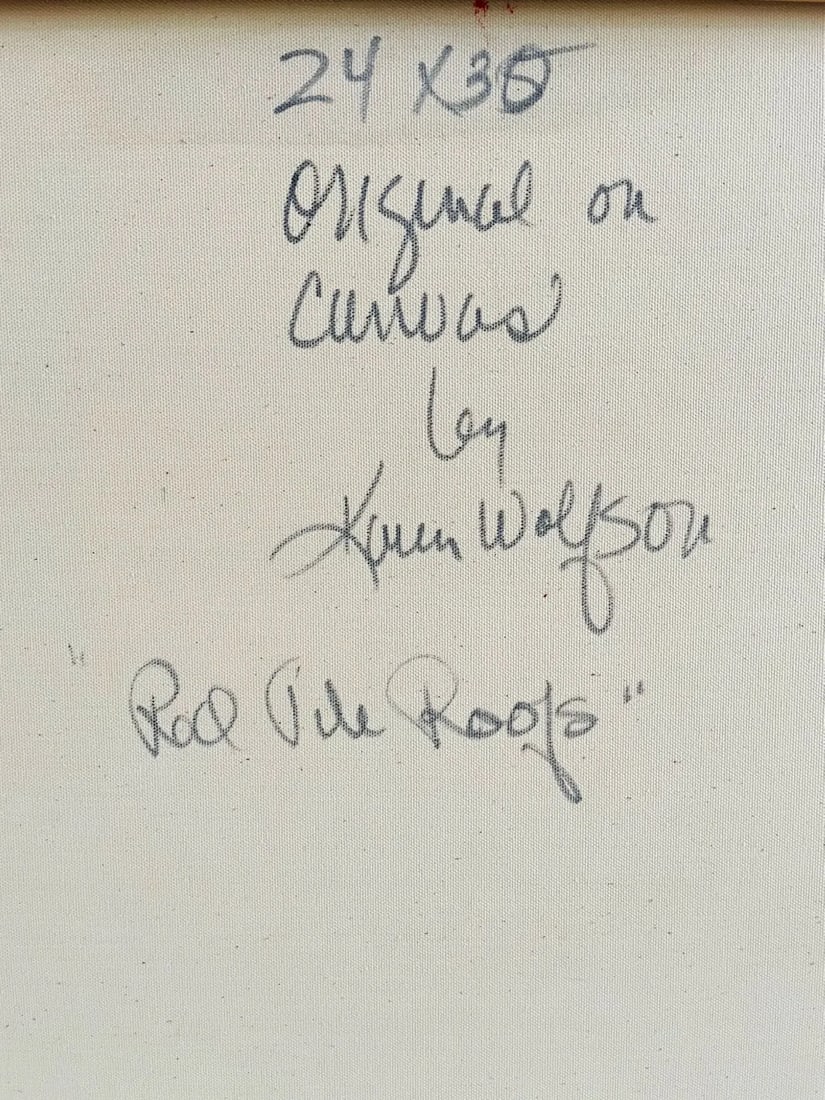 24 x 30
Original on
Canvas
by
Karen Wolfson
"Red Tile Roofs"